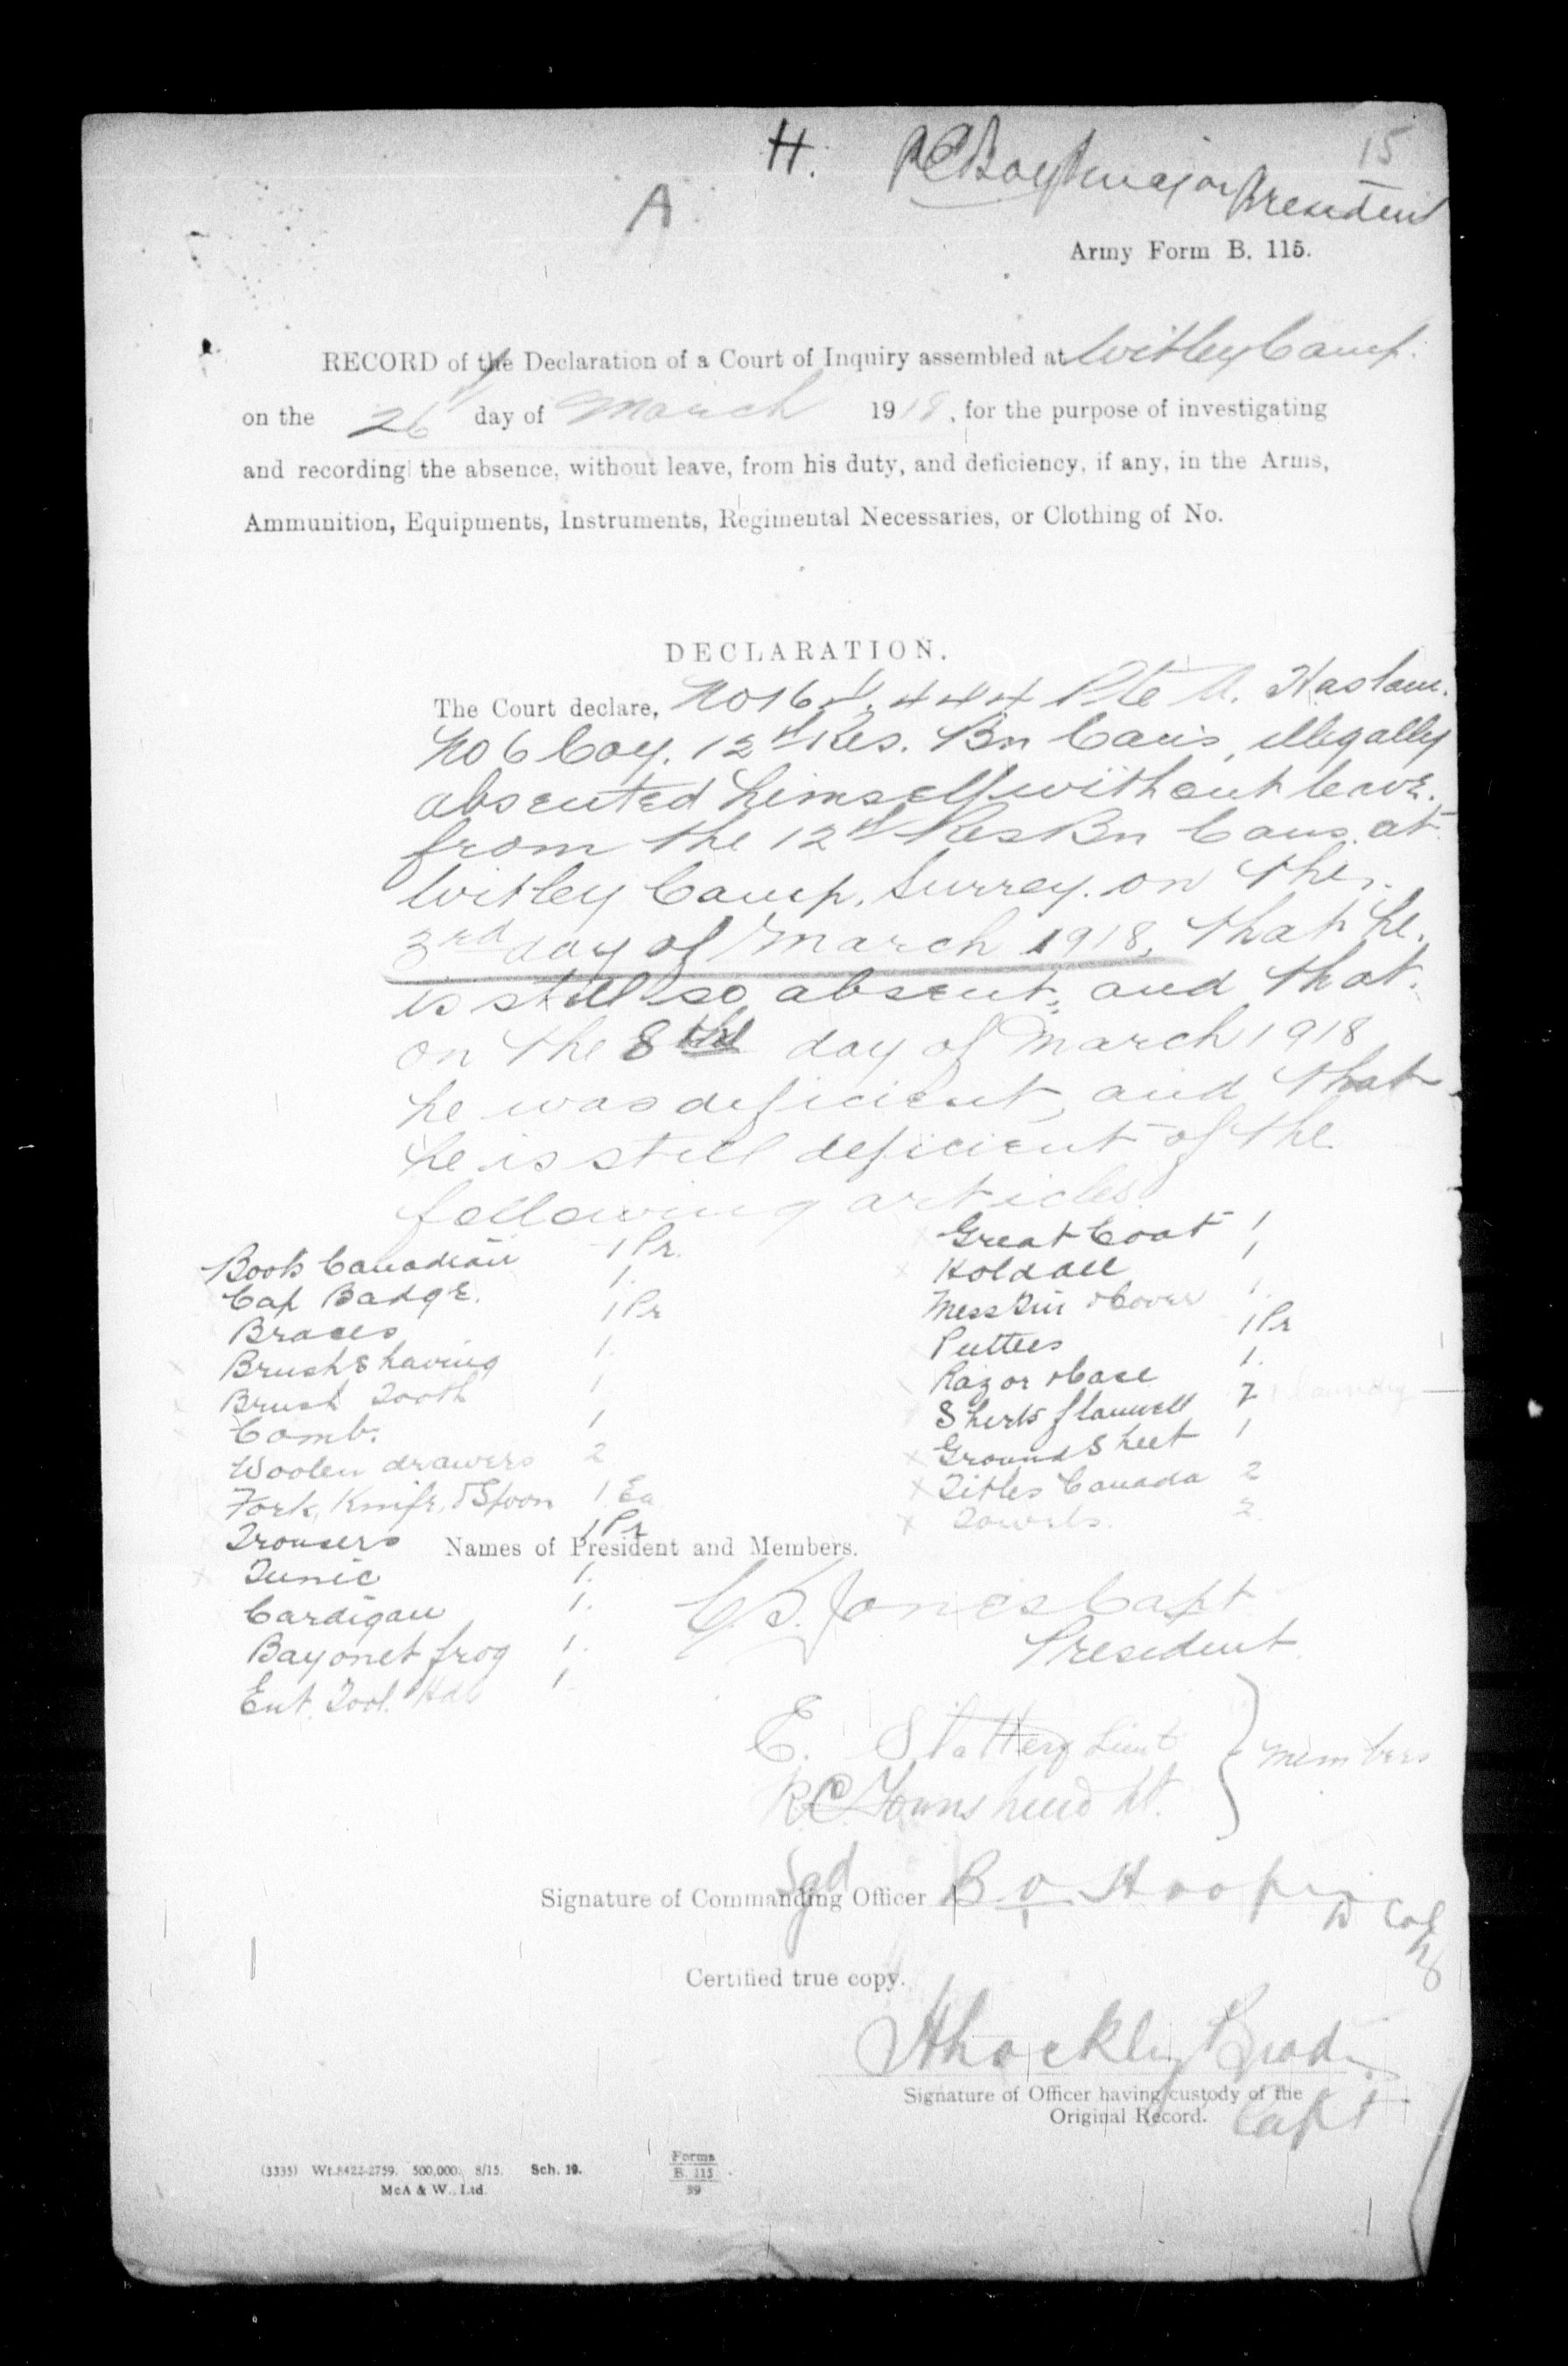 H.
15
A
Major President
Army Form B. 115.
RECORD of the Declaration of a Court of Inquiry assembled at Witley Camp.
on the 26 day of March 1918, for the purpose of investigating
and recording the absence, without leave, from his duty, and deficiency, if any, in the Arms,
Ammunition, Equipments, Instruments, Regimental Necessaries, or Clothing of No.
DECLARATION.
The Court declare, Pte A. Haslam.
No 6 Coy. 12th Res. Bn Cans, illegally
absented himself without leave.
from the 12th Res Bn Cans. at
Witley Camp, Surrey. on the
3rd day of March 1918, that he.
is still so absent, and that.
on the 8th day of March 1918
he was deficient, and that
he is still deficient of the
following articles
Boots Canadian 1 Pr.
Cap Badge. 1.
Braces 1 Pr
Brush Shaving 1.
Brush Tooth 1
Comb. 1
Woolen drawers 2
Fork, Knife, & Spoon 1 Ea
Trousers 1 Pr
Tunic 1.
Cardigan 1.
Bayonet frog 1.
Ent. Tool. 1
Great Coat 1
Holdall 1
Mess Tin & Cover 1.
Puttees 1 Pr
Razor & Case 1.
Shirts flannell
Ground Sheet 1
x Titles Canada 2
x Towels. 2
Names of President and Members.
Jones Capt
President
E. Slattery Lieut
R.C. Townshend Lt.
Members
Signature of Commanding Officer Sgd B O Hooper
Certified true copy.
Capt
Signature of Officer having custody of the
Original Record.
(3335) Wt.8422-2759. 500,000. 8/15. Sch. 19.
McA & W., Ltd.
Forms
B. 115
39